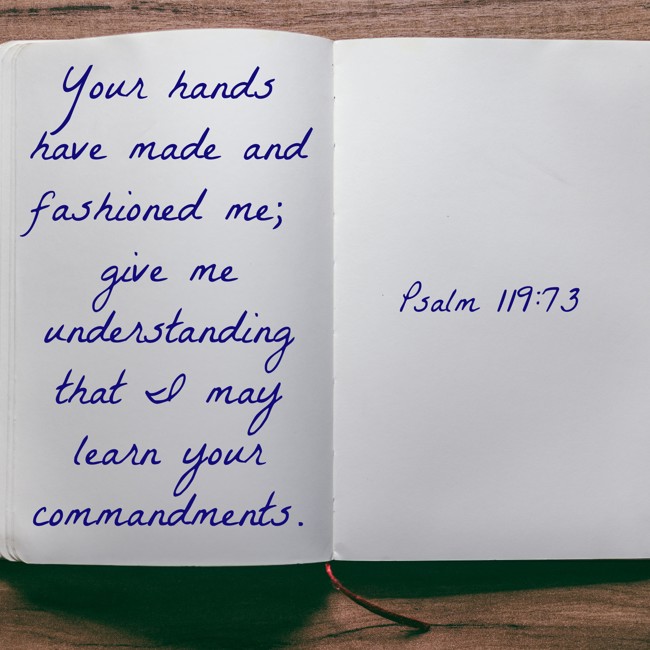 Your hands
have made and
fashioned me;
give me
understanding
that I may
learn your
commandments.
Psalm 119:73